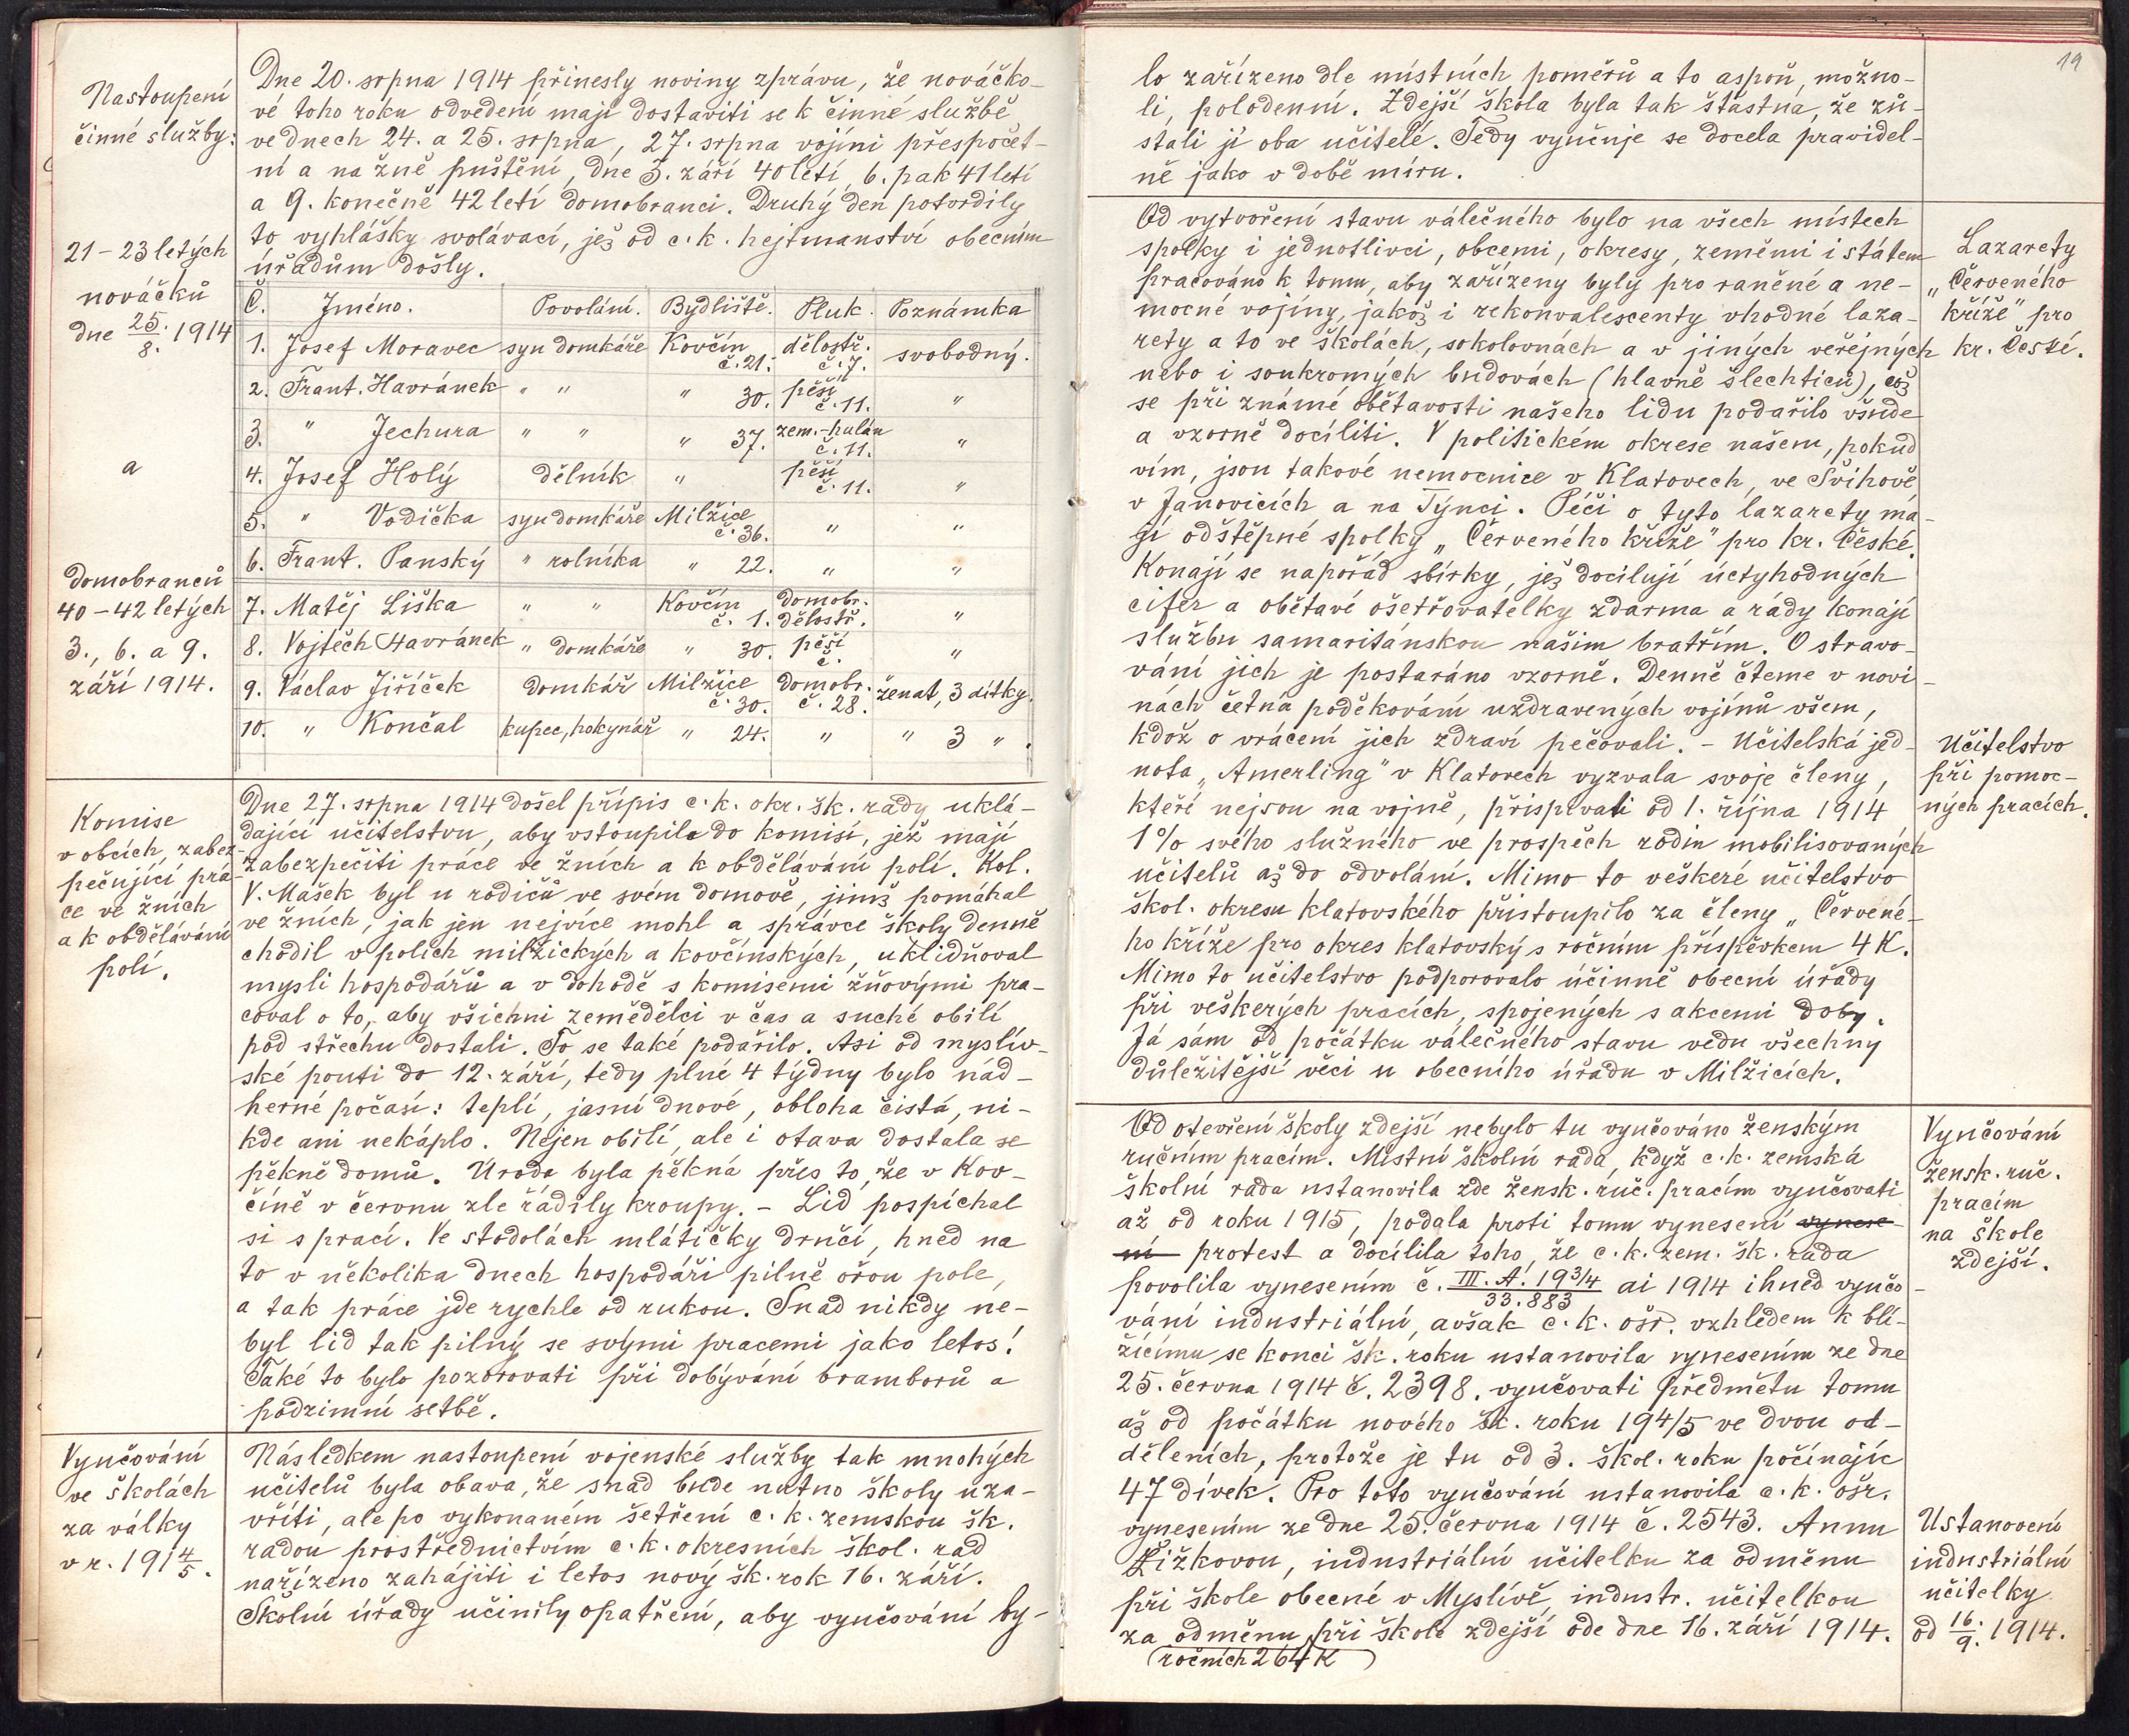 Nastoupení
činné služby:
21–23letých
nováčků
dne 25./8. 1914
a
domobranců
40–42letých
3., 6. a 9.
září 1914.
Dne 20. srpna 1914 přinesly noviny zprávu, že nováčko-
vé toho roku odvedení mají dostaviti se k činné službě
ve dnech 24. a 25. srpna, 27. srpna vojíni přespočet-
ní a na žně puštění, dne 3. září 40letí, 6. pak 41letí
a 9. konečně 42letí domobranci. Druhý den potvrdily
to vyhlášky svolávací, jež od c. k. hejtmanství obecním
úřadům došly.
Č. Jméno. Povolání. Bydliště. Pluk. Poznámka
1. Josef Moravec syn domkáře Kovčín č. 21. dělostř. č. 7. svobodný.
2. Frant. Havránek " " " 30. pěší č. 11. "
3. " Jechura " " " 37. zem.-hulán č. 11. "
4. Josef Holý dělník " pěší č. 11. "
5. " Vodička syn domkáře Milžice č. 36. " "
6. Frant. Panský " rolníka " 22. " "
7. Matěj Liška " " Kovčín č. 1. domobr. dělostř. "
8. Vojtěch Havránek " domkáře " 30. pěší č. "
9. Václav Jiříček domkář Milžice č. 30. domobr. č. 28. ženat, 3 dítky.
10. " Končal kupec, hokynář " 24. " " 3 ".
Komise
v obcích, zabez-
pečující prá-
ce ve žních
a k obdělávání
polí.
Dne 27. srpna 1914 došel přípis c. k. okr. šk. rady uklá-
dající učitelstvu, aby vstoupilo do komisí, jež mají
zabezpečiti práce ve žních a k obdělávání polí. Kol.
V. Mašek byl u rodičů ve svém domově, jimž pomáhal
ve žních, jak jen nejvíce mohl a správce školy denně
chodil v polích milžických a kovčínských, uklidňoval
mysli hospodářů a v dohodě s komisemi žňovými pra-
coval o to, aby všichni zemědělci v čas a suché obilí
pod střechu dostali. To se také podařilo. Asi od myslív-
ské pouti do 12. září, tedy plné 4 týdny bylo nád-
herné počasí: teplí, jasní dnové, obloha čistá, ni-
kde ani nekáplo. Nejen obilí, ale i otava dostala se
pěkně domů. Úroda byla pěkná přes to, že v Kov-
číně v červnu zle řádily kroupy. – Lid pospíchal
si s prací. Ve stodolách mlátičky drnčí, hned na
to v několika dnech hospodáři pilně ořou pole,
a tak práce jde rychle od rukou. Snad nikdy ne-
byl lid tak pilný se svými pracemi jako letos!
Také to bylo pozorovati při dobývání bramborů a
podzimní setbě.
Vyučování
ve školách
za války
v r. 1914/5.
Následkem nastoupení vojenské služby tak mnohých
učitelů byla obava, že snad bude nutno školy uza-
vříti, ale po vykonaném šetření c. k. zemskou šk.
radou prostřednictvím c. k. okresních škol. rad
nařízeno zahájiti i letos nový šk. rok 16. září.
Školní úřady učinily opatření, aby vyučování by-
19
lo zařízeno dle místních poměrů a to aspoň, možno-
li, polodenní. Zdejší škola byla tak šťastna, že zů-
stali jí oba učitelé. Tedy vyučuje se docela pravidel-
ně jako v době míru.
Od vytvoření stavu válečného bylo na všech místech
spolky i jednotlivci, obcemi, okresy, zeměmi i státem
pracováno k tomu, aby zařízeny byly pro raněné a ne-
mocné vojíny, jakož i rekonvalescenty vhodné laza-
rety a to ve školách, sokolovnách a v jiných veřejných
nebo i soukromých budovách (hlavně šlechticů), což
se při známé obětavosti našeho lidu podařilo všude
a vzorně docíliti. V politickém okrese našem, pokud
vím, jsou takové nemocnice v Klatovech, ve Švihově
v Janovicích a na Týnci. Péči o tyto lazarety ma-
jí odštěpné spolky „Červeného kříže" pro kr. České.
Konají se napořád sbírky, jež docilují úctyhodných
cifer a obětavé ošetřovatelky zdarma a rády konají
službu samaritánskou našim bratřím. O stravo-
vání jich je postaráno vzorně. Denně čteme v novi-
nách četná poděkování uzdravených vojínů všem,
kdož o vrácení jich zdraví pečovali. – Učitelská jed-
nota „Amerling" v Klatovech vyzvala svoje členy,
kteří nejsou na vojně, přispívati od 1. října 1914
1% svého služného ve prospěch rodin mobilisovaných
učitelů až do odvolání. Mimo to veškeré učitelstvo
škol. okresu klatovského přistoupilo za členy „Červené-
ho kříže pro okres klatovský s ročním příspěvkem 4 K.
Mimo to učitelstvo podporovalo účinně obecní úřady
při veškerých pracích, spojených s akcemi doby.
Já sám od počátku válečného stavu vedu všechny
důležitější věci u obecního úřadu v Milžicích.
Lazarety
„Červeného
kříže" pro
kr. České.
Učitelstvo
při pomoc-
ných pracích.
Od otevření školy zdejší nebylo tu vyučováno ženským
ručním pracím. Místní školní rada, když c. k. zemská
školní rada ustanovila zde žensk. ruč. pracím vyučovati
až od roku 1915, podala proti tomu vynesení vynese-
ní protest a docílila toho, že c. k. zem. šk. rada
povolila vynesením č. III. A. 19 3/4 / 33.883 ai 1914 ihned vyučo-
vání industriální, avšak c. k. ošr. vzhledem k blí-
žícímu se konci šk. roku ustanovila vynesením ze dne
25. června 1914 č. 2398. vyučovati předmětu tomu
až od počátku nového šk. roku 194/5 ve dvou od-
děleních, protože je tu od 3. škol. roku počínajíc
47 dívek. Pro toto vyučování ustanovila c. k. ošr.
vynesením ze dne 25. června 1914 č. 2543. Annu
Žižkovou, industriální učitelku za odměnu
při škole obecné v Myslívě, industr. učitelkou
za odměnu při škole zdejší ode dne 16. září 1914.
(ročních 264 K)
Vyučování
žensk. ruč.
pracím
na škole
zdejší.
Ustanovení
industriální
učitelky
od 16./9. 1914.